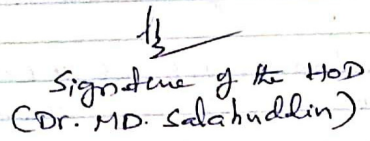 Signature of the HoD
(Dr. MD. Salahuddin)